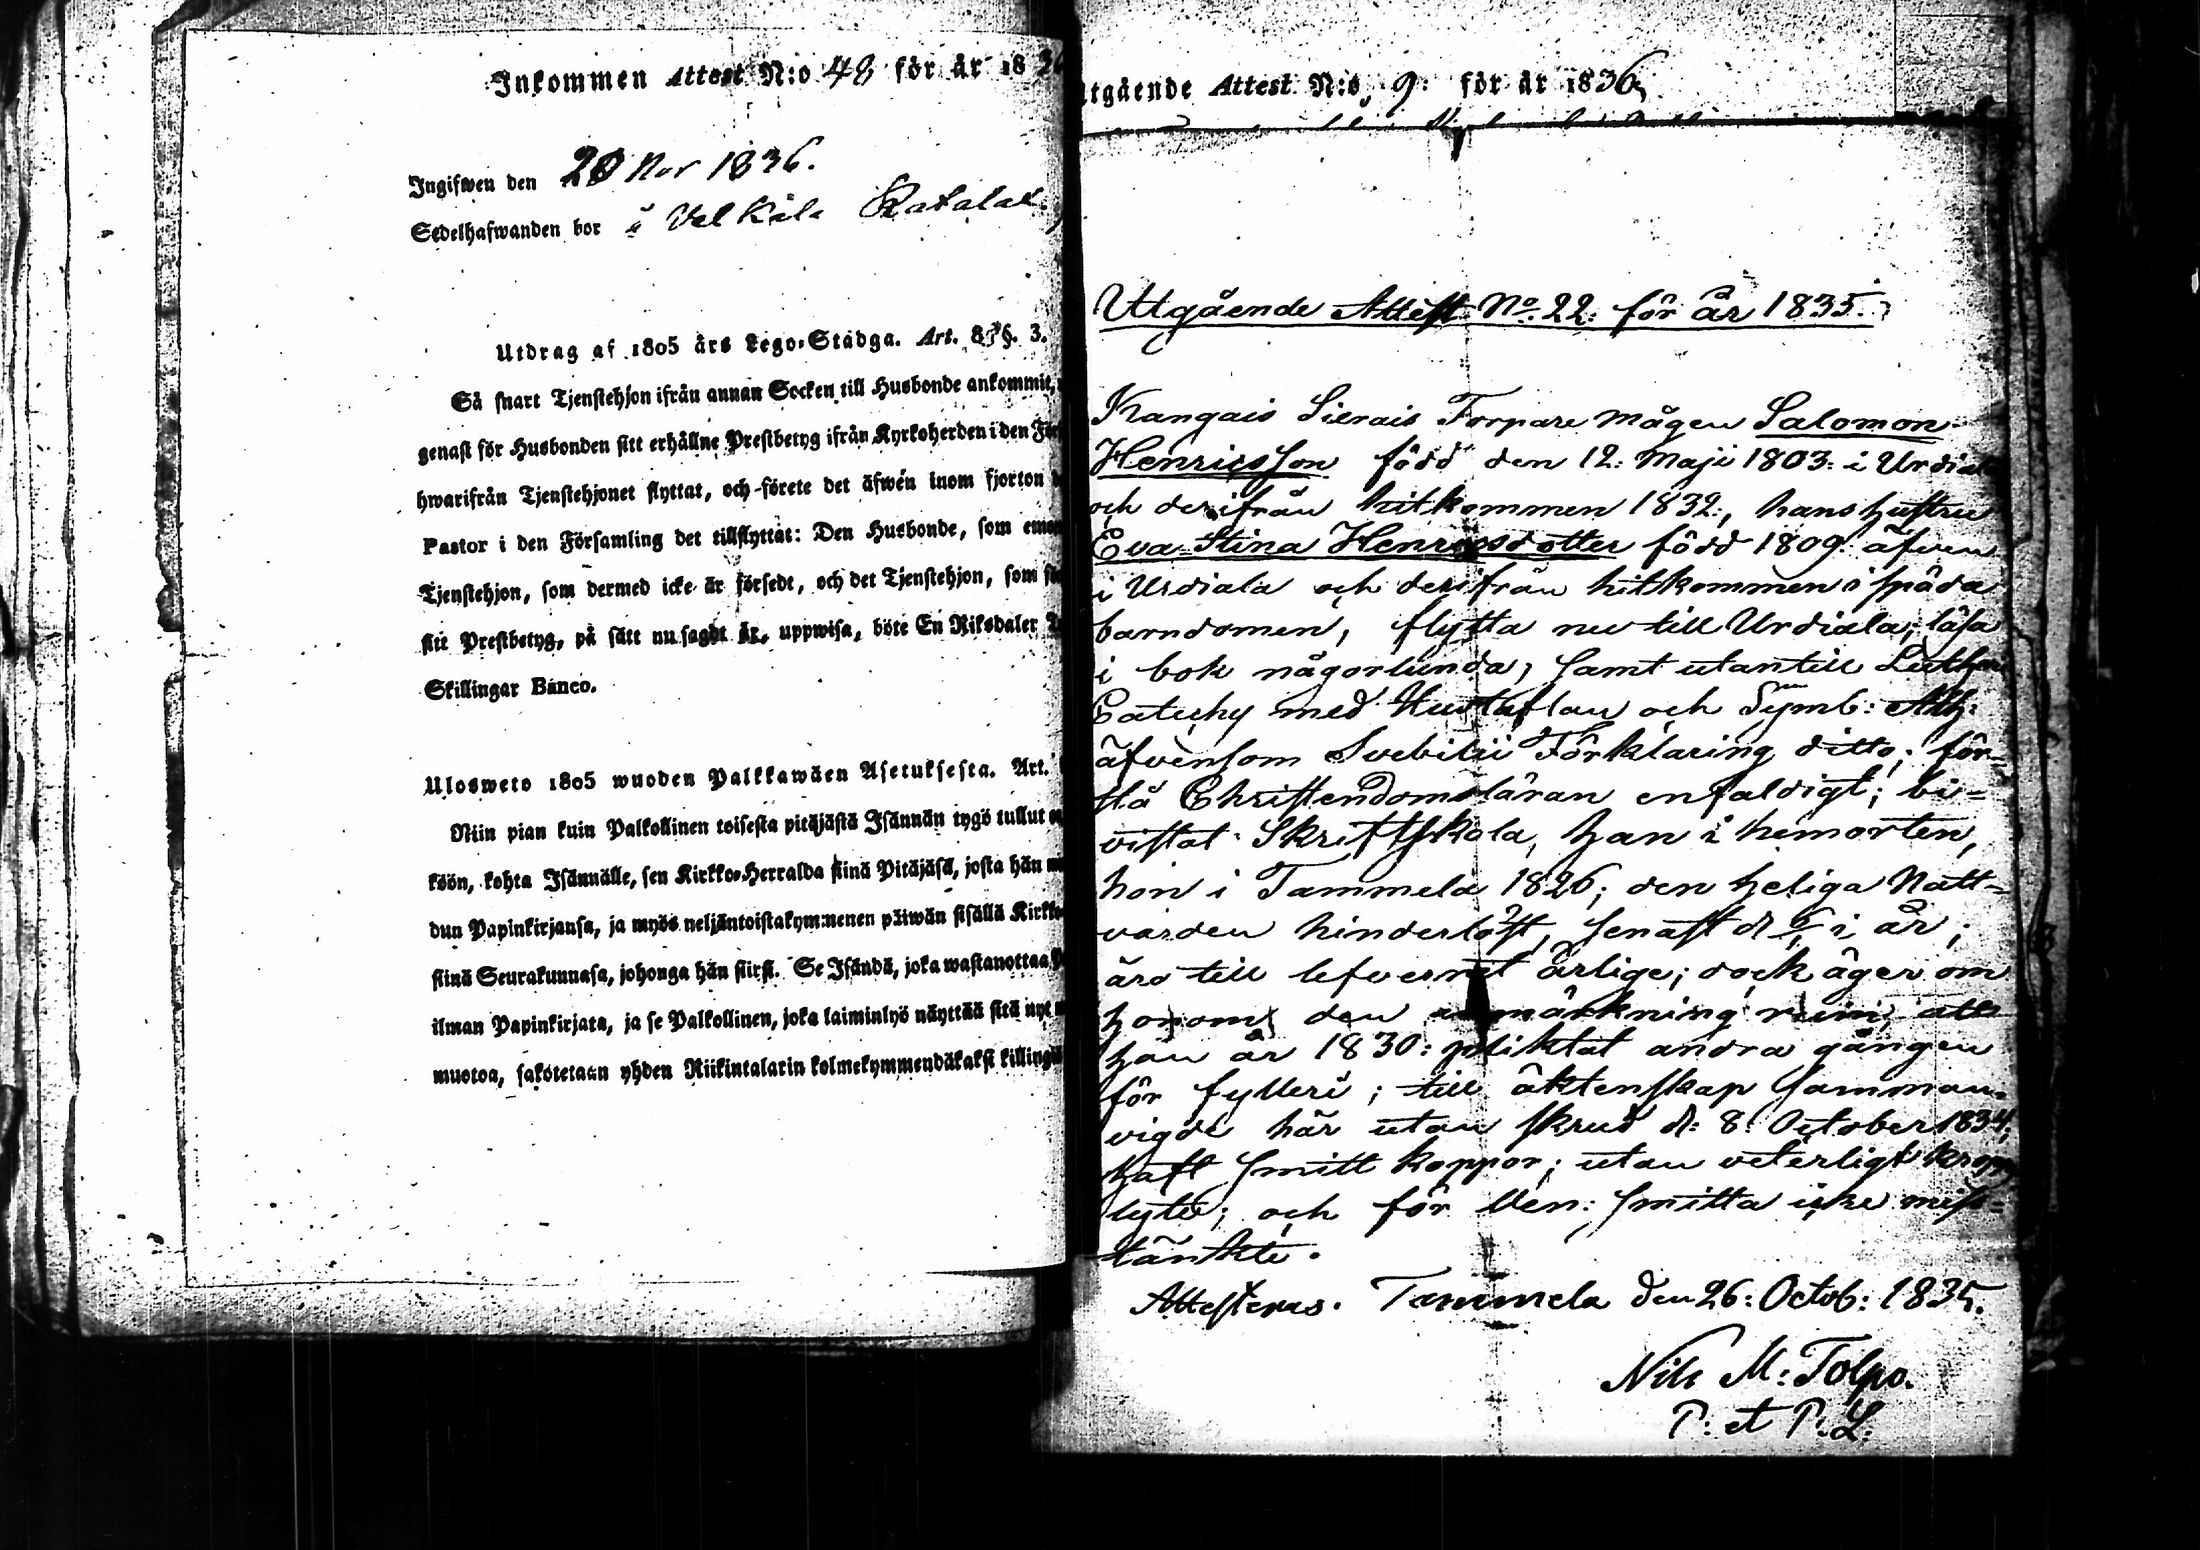 Inkommen Attest N:o 48 för år 1836
Ingifwen den 20 Nov 1836.
Sedelhafwanden bor i Velkila
Utdrag af 1805 års Lego-Stadga. Art. 8. §. 3.
Så snart Tjenstehjon ifrån annan Socken till Husbonde ankommit,
genast för Husbonden sitt erhållne Prestbetyg ifrån Kyrkoherden i den
hwarifrån Tjenstehjonet flyttat, och förete det äfwen inom fjorton
Pastor i den Församling det tillflyttat: Den Husbonde, som
Tjenstehjon, som dermed icke är försedt, och det Tjenstehjon, som
sitt Prestbetyg, på sätt nu sagdt är, uppwisa, böte En Riksdaler
Skillingar Banco.
Ulosweto 1805 wuoden Palkkawäen Asetuksesta. Art.
Niin pian kuin Palkollinen toisesta pitäjästä Isännän tygö tullut
köön, kohta Isännälle, sen Kirkko-Herralda siinä Pitäjäsä, josta hän
dun Papinkirjansa, ja myös neljäntoistakymmenen päiwän sisällä
siinä Seurakunnasa, johonga hän siirsi. Se Isändä, joka wastanottaa
ilman Papinkirjata, ja se Palkollinen, joka laiminlyö näyttää sitä nyt
muotoa, sakotetaan yhden Riikintalarin kolmekymmendäkaksi killingiä
tgående Attest N:o 9: för år 1836,
Utgående Attest No. 22: för år 1835.
Kangais Sierais Torpare mågen Salomon
Henricsson född den 12: Maji 1803: i Urdiala
och derifrån hitkommen 1832:, hans hustru
Eva Stina Henricsdotter född 1809: äfven
i Urdiala och derifrån hitkommen i späda
barndomen, flytta nu till Urdiala; läsa
i bok någorlunda, samt utantill Luth:
Catechy med Hustaflan och Symb: Ath:
äfvensom Svebilii Förklaring ditto; för-
stå Christendomsläran enfaldigt; bi-
vistat Skriftskola, han i hemorten,
hon i Tammela 1826; den heliga Natt-
varden hinderlöst, senast d i år;
äro till lefvernet ärlige; dock äger om
honom den anmärkning rum, att
han år 1830: pliktat andra gången
för fylleri; till äktenskap samman-
vigde här utan skrud d: 8: October 1834,
haft smitt koppor; utan veterligt kropps
lyte; och för Ven: smitta icke miss-
tänkte.
Attesteras. Tammela den 26: Octob: 1835.
Nils M: Tolpo.
P: et P: L: